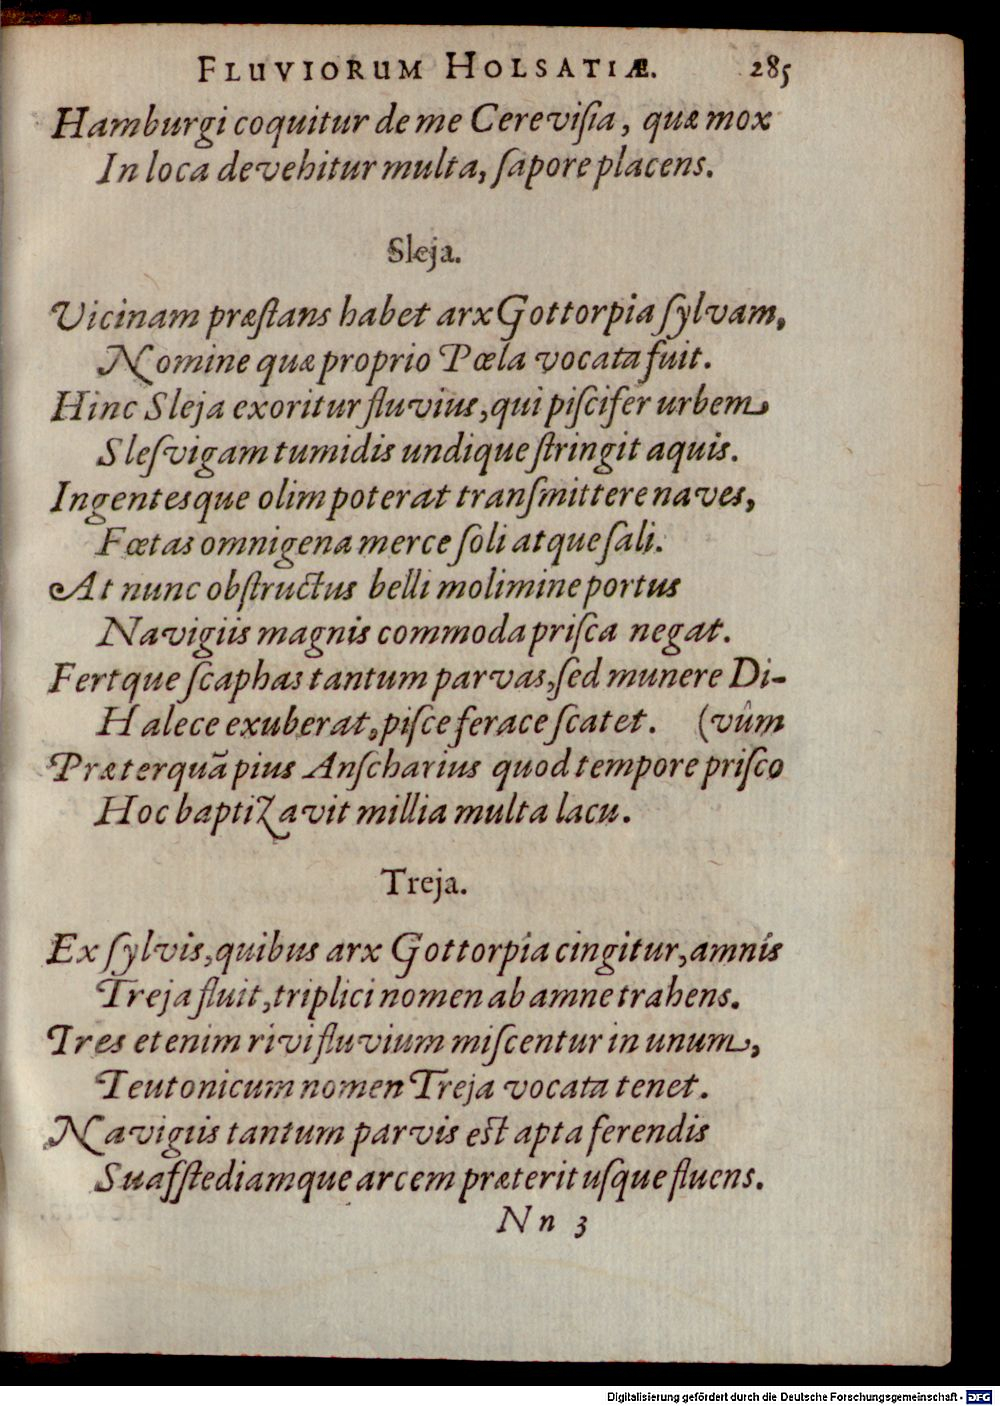 FLUVIORUM HOLSATIÆ. 285
Hamburgi coquitur de me Cereviſia, quæ mox
In loca devehitur multa, ſapore placens.
Sleja.
Vicinam præſtans habet arx Gottorpia ſylvam,
Nomine quæ proprio Pœla vocata fuit.
Hinc Sleja exoritur fluvius, qui piſcifer urbem
Sleſvigam tumidis undique ſtringit aquis.
Ingentesque olim poterat tranſmittere naves,
Fœtas omnigena merce ſoli atque ſali.
At nunc obſtructus belli molimine portus
Navigiis magnis commoda priſca negat.
Fertque ſcaphas tantum parvas, ſed munere Di-
Halece exuberat, piſce ferace ſcatet. (vûm
Præterquã pius Anſcharius quod tempore priſco
Hoc baptizavit millia multa lacu.
Treja.
Ex ſylvis, quibus arx Gottorpia cingitur, amnis
Treja fluit, triplici nomen ab amne trahens.
Tres etenim rivi fluvium miſcentur in unum,
Teutonicum nomen Treja vocata tenet.
Navigiis tantum parvis est apta ferendis
Suafſtediamque arcem præterit uſque fluens.
Nn 3
Digitalisierung gefördert durch die Deutsche Forschungsgemeinschaft - DFG